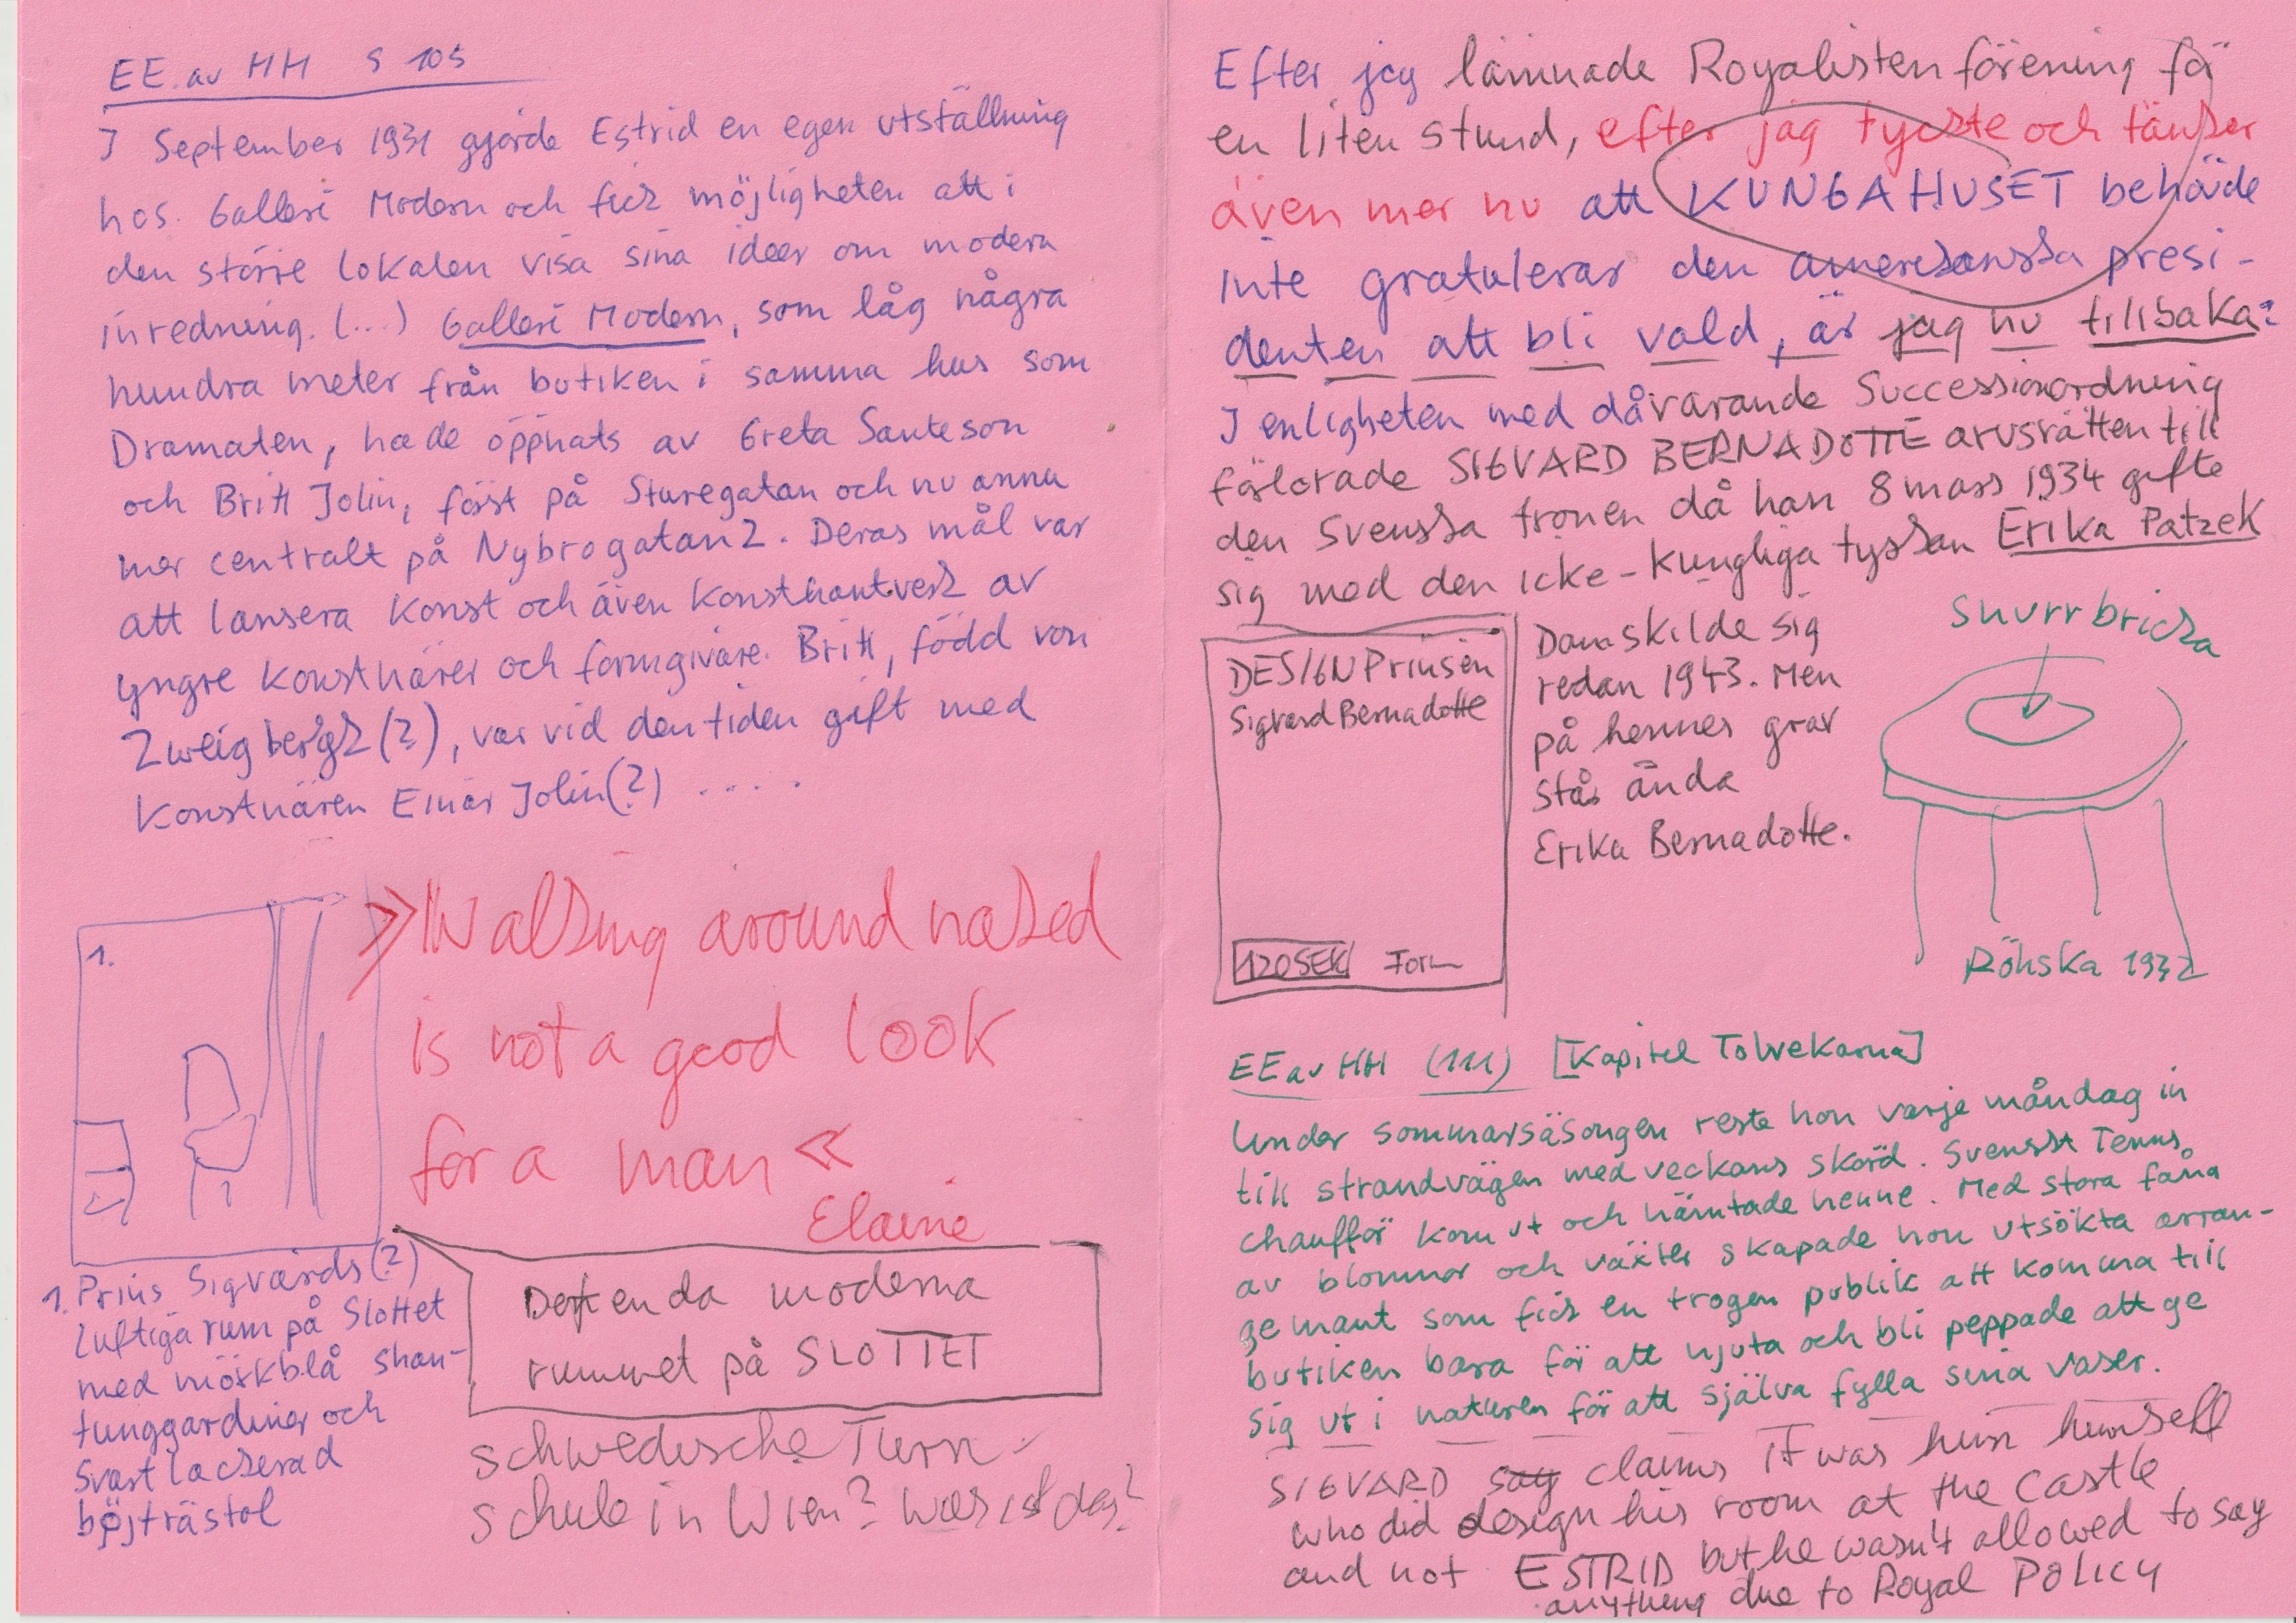 EE. av HH S 105
I September 1931 gjorde Estrid en egen utställning
hos Galleri Modern och fick möjligheten att i
den större lokalen visa sina ideer om modern
inredning. (...) Galleri Modern, som låg några
hundra meter från butiken i samma hus som
Dramaten, hade öppnats av Greta Santeson
och Britt Jolin, först på Sturegatan och nu ännu
mer centralt på Nybrogatan 2. Deras mål var
att lansera konst och även konsthantverk av
yngre konstnärer och formgivare. Britt, född von
Zweigbergk (?), var vid den tiden gift med
konstnären Einar Jolin (?) .....
1.
»Walking around naked
is not a good look
for a man «
Elaine
1. Prins Sigvards (?)
luftiga rum på Slottet
med mörkblå shan-
tunggardiner och
svartlackerad
böjträstol
Det enda moderna
rummet på SLOTTET
schwedische Turn-
schule in Wien? was ist das?
Efter jag lämnade Royalisten förening för
en liten stund, efter jag tyckte och tänker
även mer nu att KUNGAHUSET behövde
inte gratulerar den amerikanska presi-
denten att bli vald, är jag nu tillbaka?
I enligheten med dåvarande Successionordning
förlorade SIGVARD BERNADOTTE arvsrätten till
den Svenska tronen då han 8 mars 1934 gifte
sig med den icke-kungliga tyskan Erika Patzek
DESIGN Prinsen
Sigvard Bernadotte
120 SEK Form
Dom skilde sig
redan 1943. Men
på hennes grav
står ända
Erika Bernadotte.
snurrbricka
Röhska 1932
EE av HH (111) [Kapitel Tolvekarna]
Under sommarsäsongen reste hon varje måndag in
till strandvägen med veckans skörd. Svenskt Tenns
chaufför kom ut och hämtade henne. Med stora fång
av blommor och växter skapade hon utsökta arran-
gemant som fick en trogen publik att komma till
butiken bara för att njuta och bli peppade att ge
sig ut i naturen för att själva fylla sina vaser.
SIGVARD say claims it was him himself
who did design his room at the castle
and not ESTRID but he wasn't allowed to say
anything due to Royal POLICY